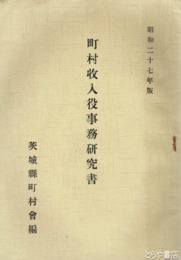 昭和二十七年版
町村收入役事務研究書
茨城縣町村會編
とうや書店